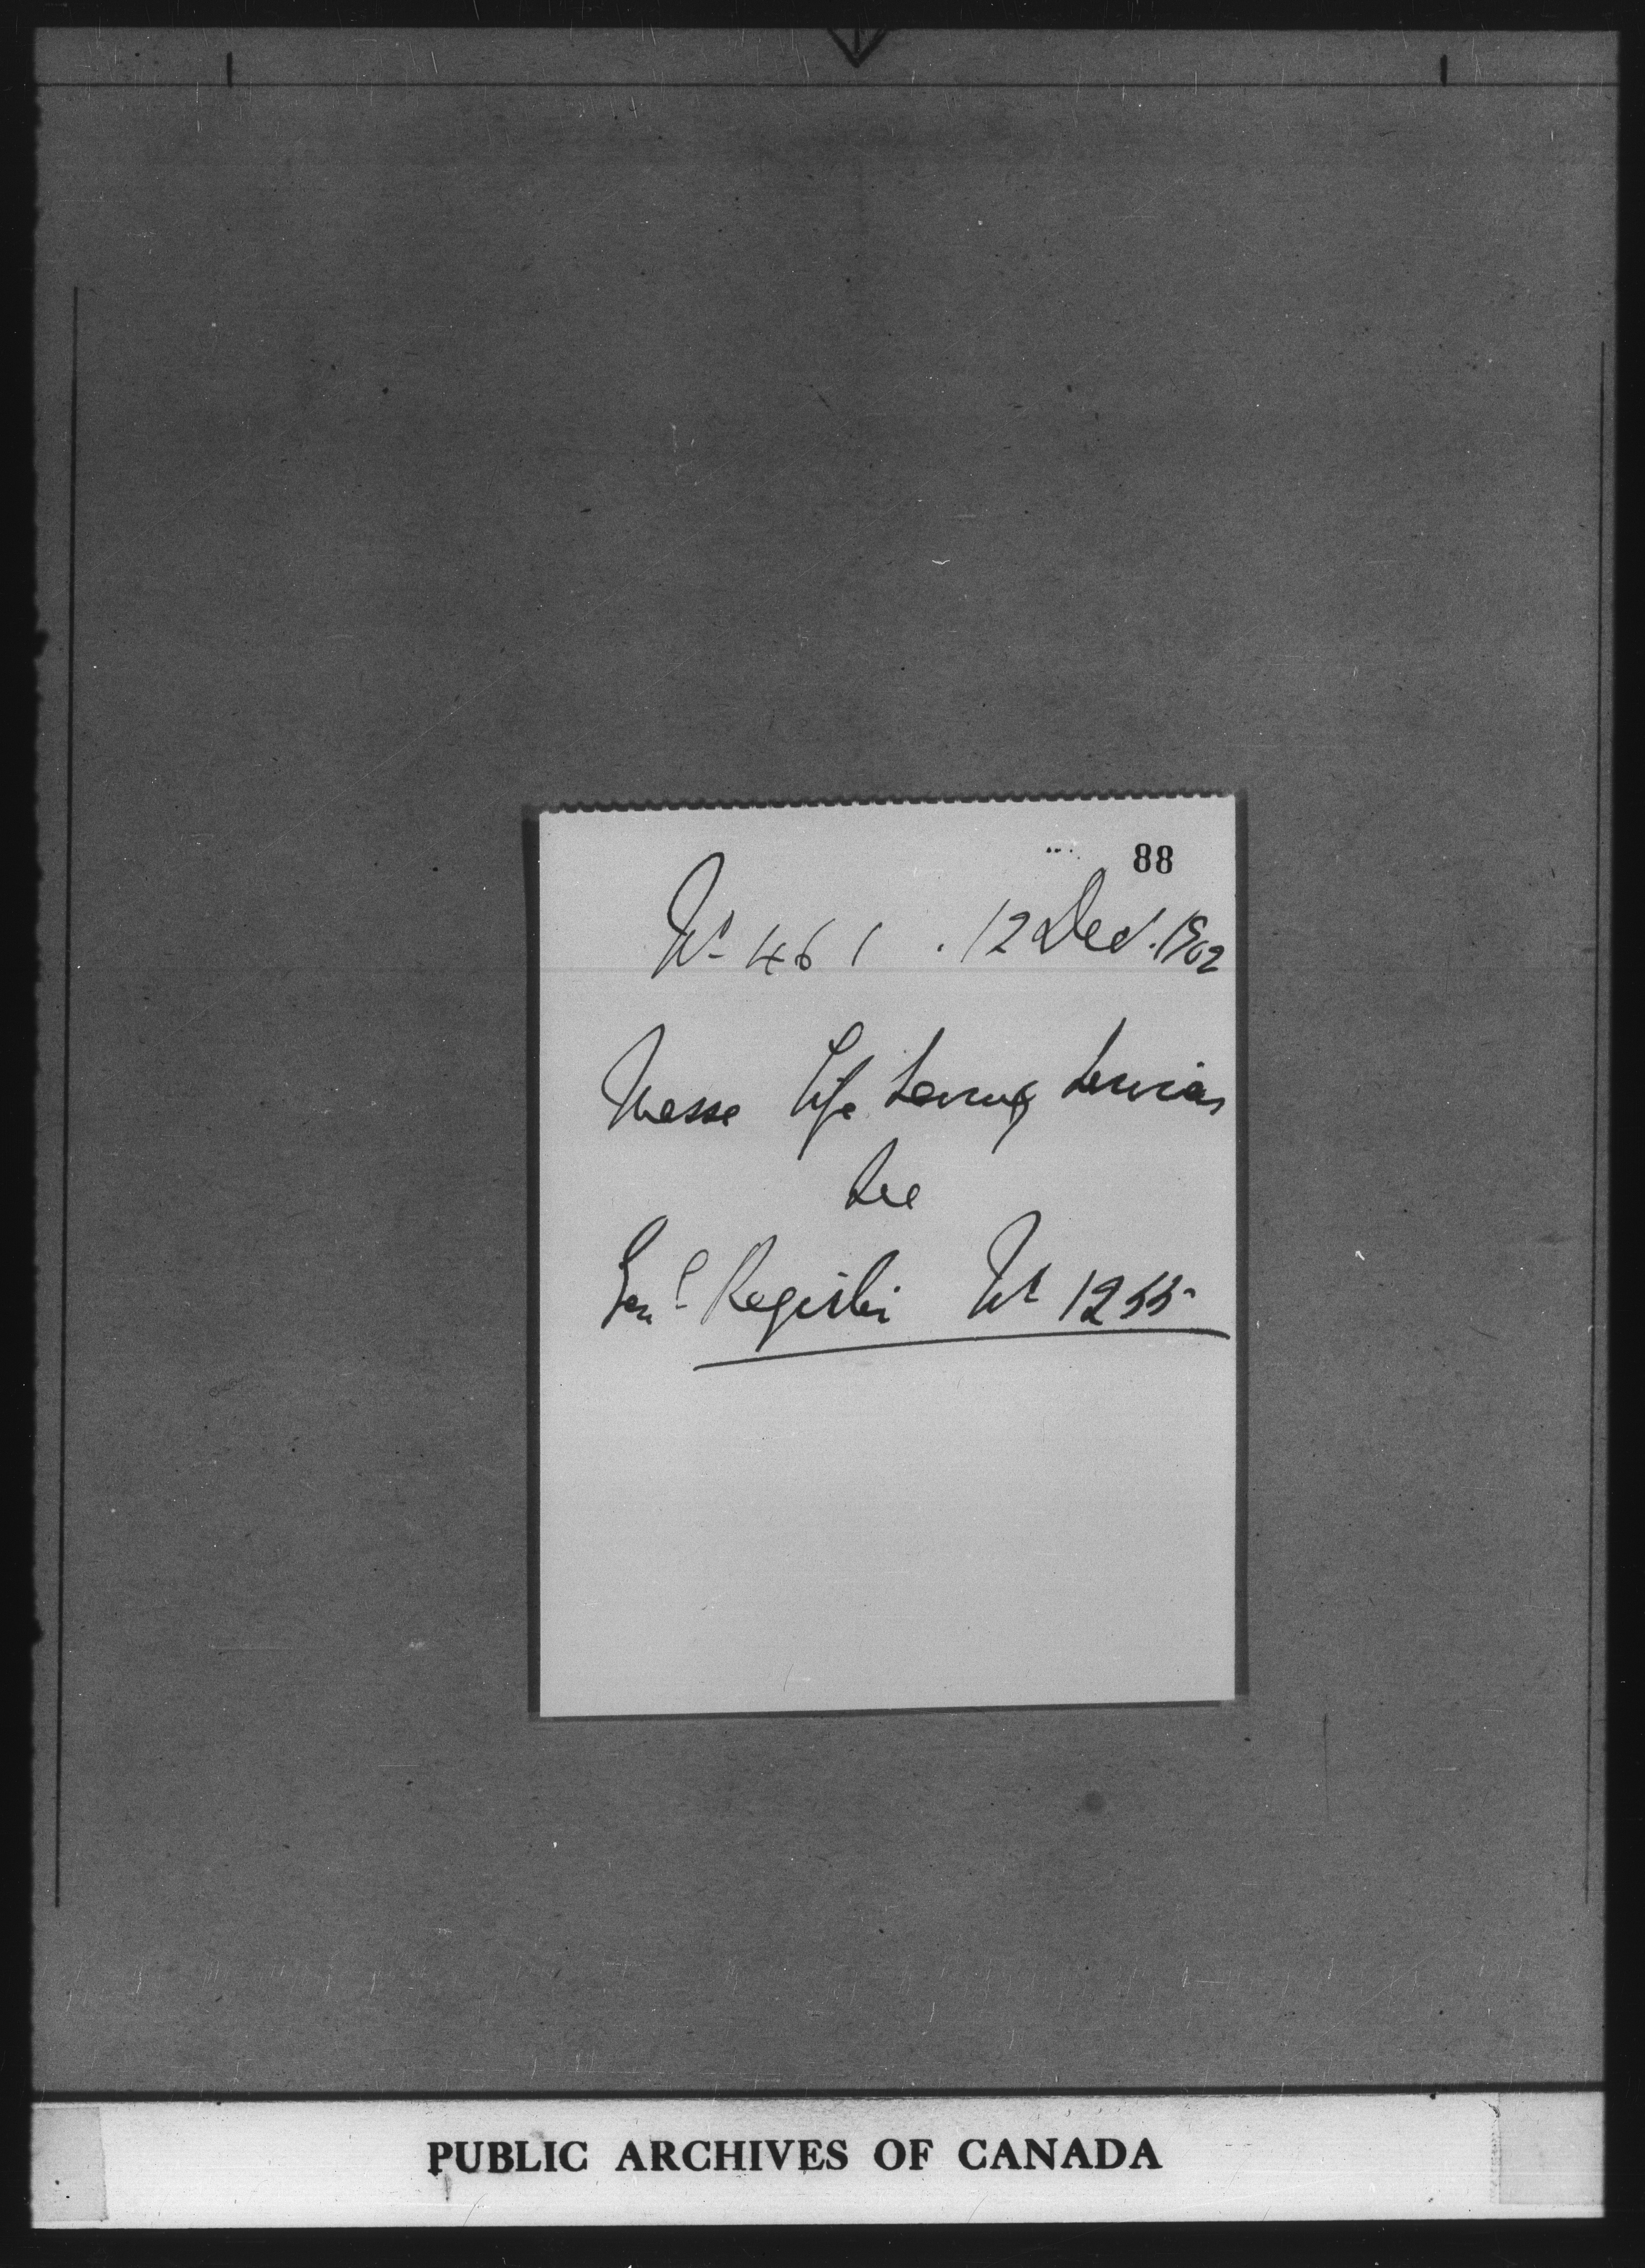 88
No 461 . 12 Dec. 1902
Masse Life Saving Services
See
Genl Register No 1255
PUBLIC ARCHIVES OF CANADA